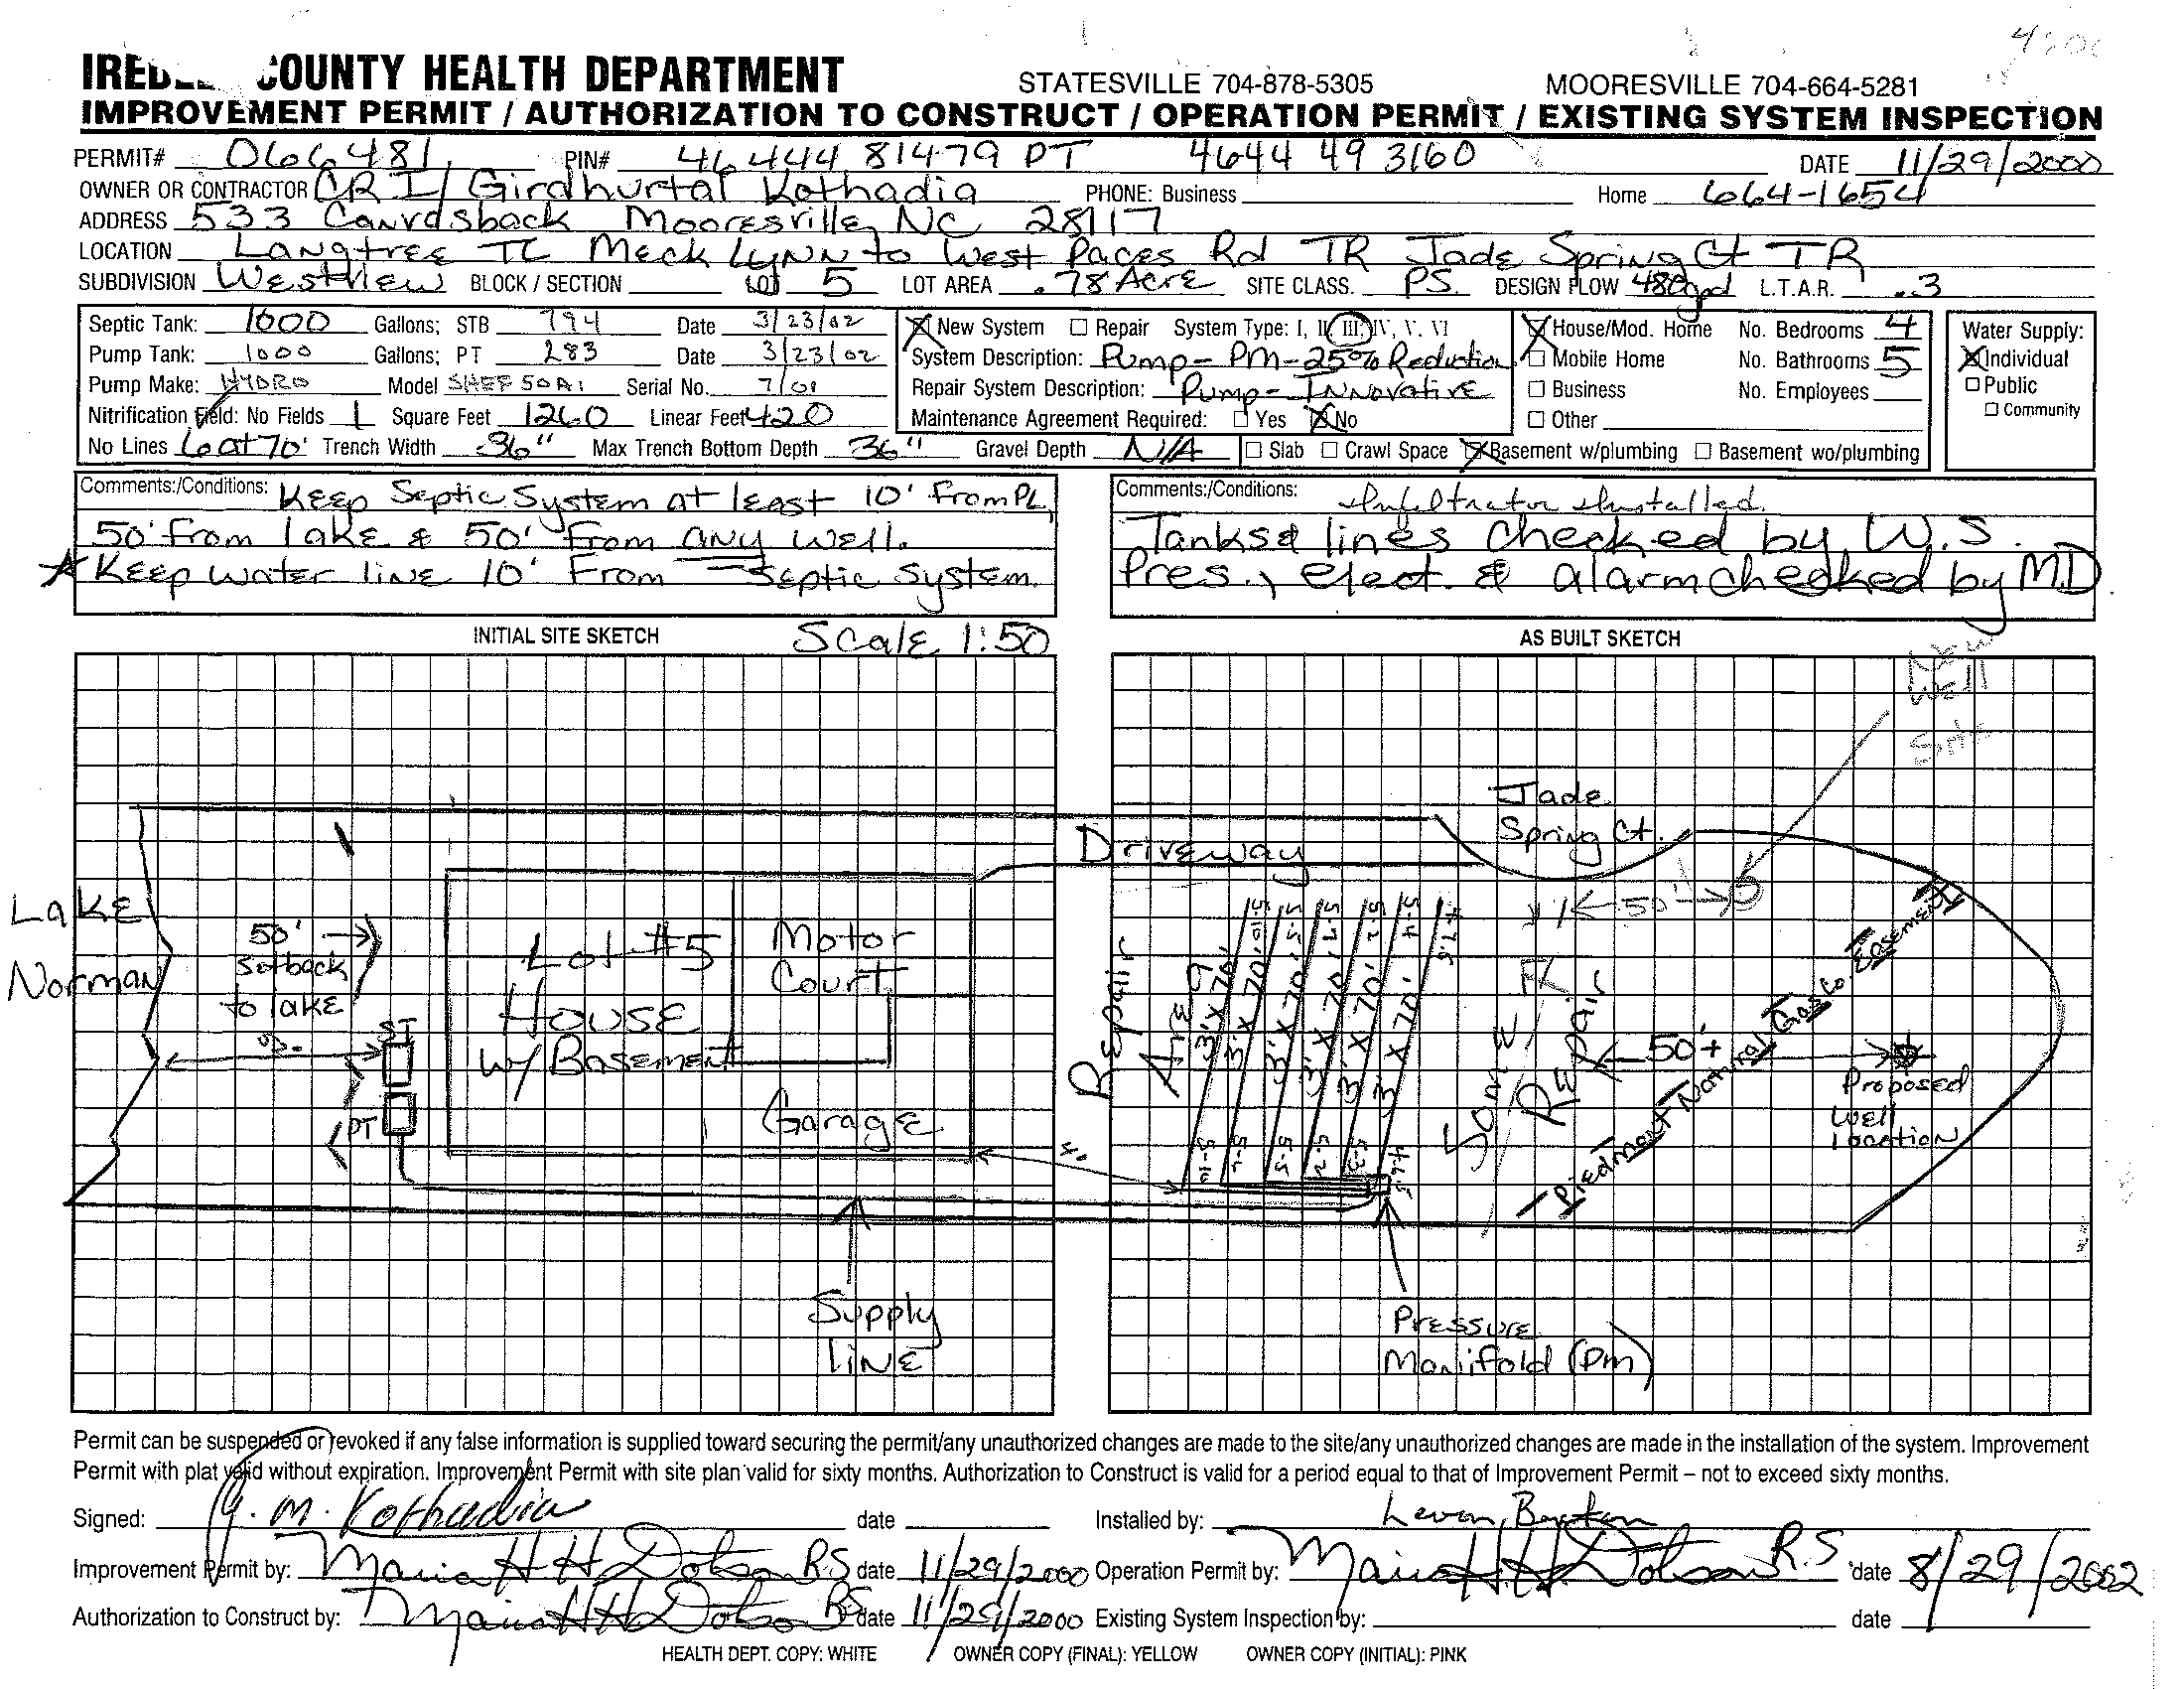 COUNTY HEALTH DEPARTMENT STATESVILLE 704-878-5305 MOORESVILLE 704-664-5281
IMPROVEMENT PERMIT / AUTHORIZATION TO CONSTRUCT / OPERATION PERMIT / EXISTING SYSTEM INSPECTION
PERMIT# 066481 PIN# 46444 81479 PT 4644 49 3160 DATE 11/29/2000
OWNER OR CONTRACTOR CRI/ Girdhurtal Kothadia PHONE: Business Home 664-1654
ADDRESS 533 Canvasback Mooresville, NC 28117
LOCATION Langtree TL Meck Lynn to West Paces Rd TR Jade Spring Ct TR
SUBDIVISION Westview BLOCK / SECTION LOT 5 LOT AREA .78 Acre SITE CLASS. PS. DESIGN FLOW 480gpd L.T.A.R. .3
Septic Tank: 1000 Gallons; STB 794 Date 3/23/02
Pump Tank: 1000 Gallons; PT 283 Date 3/23/02
Pump Make: HYDRO Model SHEF50A1 Serial No. 7/01
Nitrification Field: No Fields 1 Square Feet 1260 Linear Feet 420
No Lines 6 at 70' Trench Width 36" Max Trench Bottom Depth 36" Gravel Depth N/A
New System Repair System Type: I, II, III, IV, V, VI
System Description: Pump-PM-25% Reduction
Repair System Description: Pump-Innovative
Maintenance Agreement Required: Yes No
Slab Crawl Space Basement w/plumbing Basement wo/plumbing
House/Mod. Home No. Bedrooms 4
Mobile Home No. Bathrooms 5
Business No. Employees
Other
Water Supply:
Individual
Public
Community
Comments:/Conditions: Keep Septic System at least 10' From PL,
50' from lake & 50' from any well.
Keep water line 10' From Septic System.
Comments:/Conditions: Infiltrator Installed.
Tanks & lines checked by W.S.
Pres., elect. & alarm checked by MD
INITIAL SITE SKETCH Scale 1:50
AS BUILT SKETCH
New
Well
Site
Jade
Spring Ct.
Driveway
Lake
Norman
50'
Setback
to lake
ST
PT
Lot #5
House
w/ Basement
Motor
Court
Garage
Repair
Area
5-10 5-5 5-7 5-2 5-4 4-7.5
3' X 70'
3' X 70'
3' X 70'
3' X 70'
3' X 70'
3' X 70'
5-5 5-2 5-3 4-6.5
50'
Some
Repair
Piedmont Natural Gas Co. Easement
50'+
Proposed
Well
Location
Supply
line
Pressure
Manifold (Pm)
Permit can be suspended or revoked if any false information is supplied toward securing the permit/any unauthorized changes are made to the site/any unauthorized changes are made in the installation of the system. Improvement
Permit with plat valid without expiration. Improvement Permit with site plan valid for sixty months. Authorization to Construct is valid for a period equal to that of Improvement Permit – not to exceed sixty months.
Signed: G. M. Kothadia date Installed by:
Improvement Permit by: Maria H H Dotson RS date 11/29/2000 Operation Permit by: Maria H.H. Dotson R.S date 8/29/2002
Authorization to Construct by: Maria H H Dotson RS date 11/29/2000 Existing System Inspection by: date
HEALTH DEPT. COPY: WHITE OWNER COPY (FINAL): YELLOW OWNER COPY (INITIAL): PINK